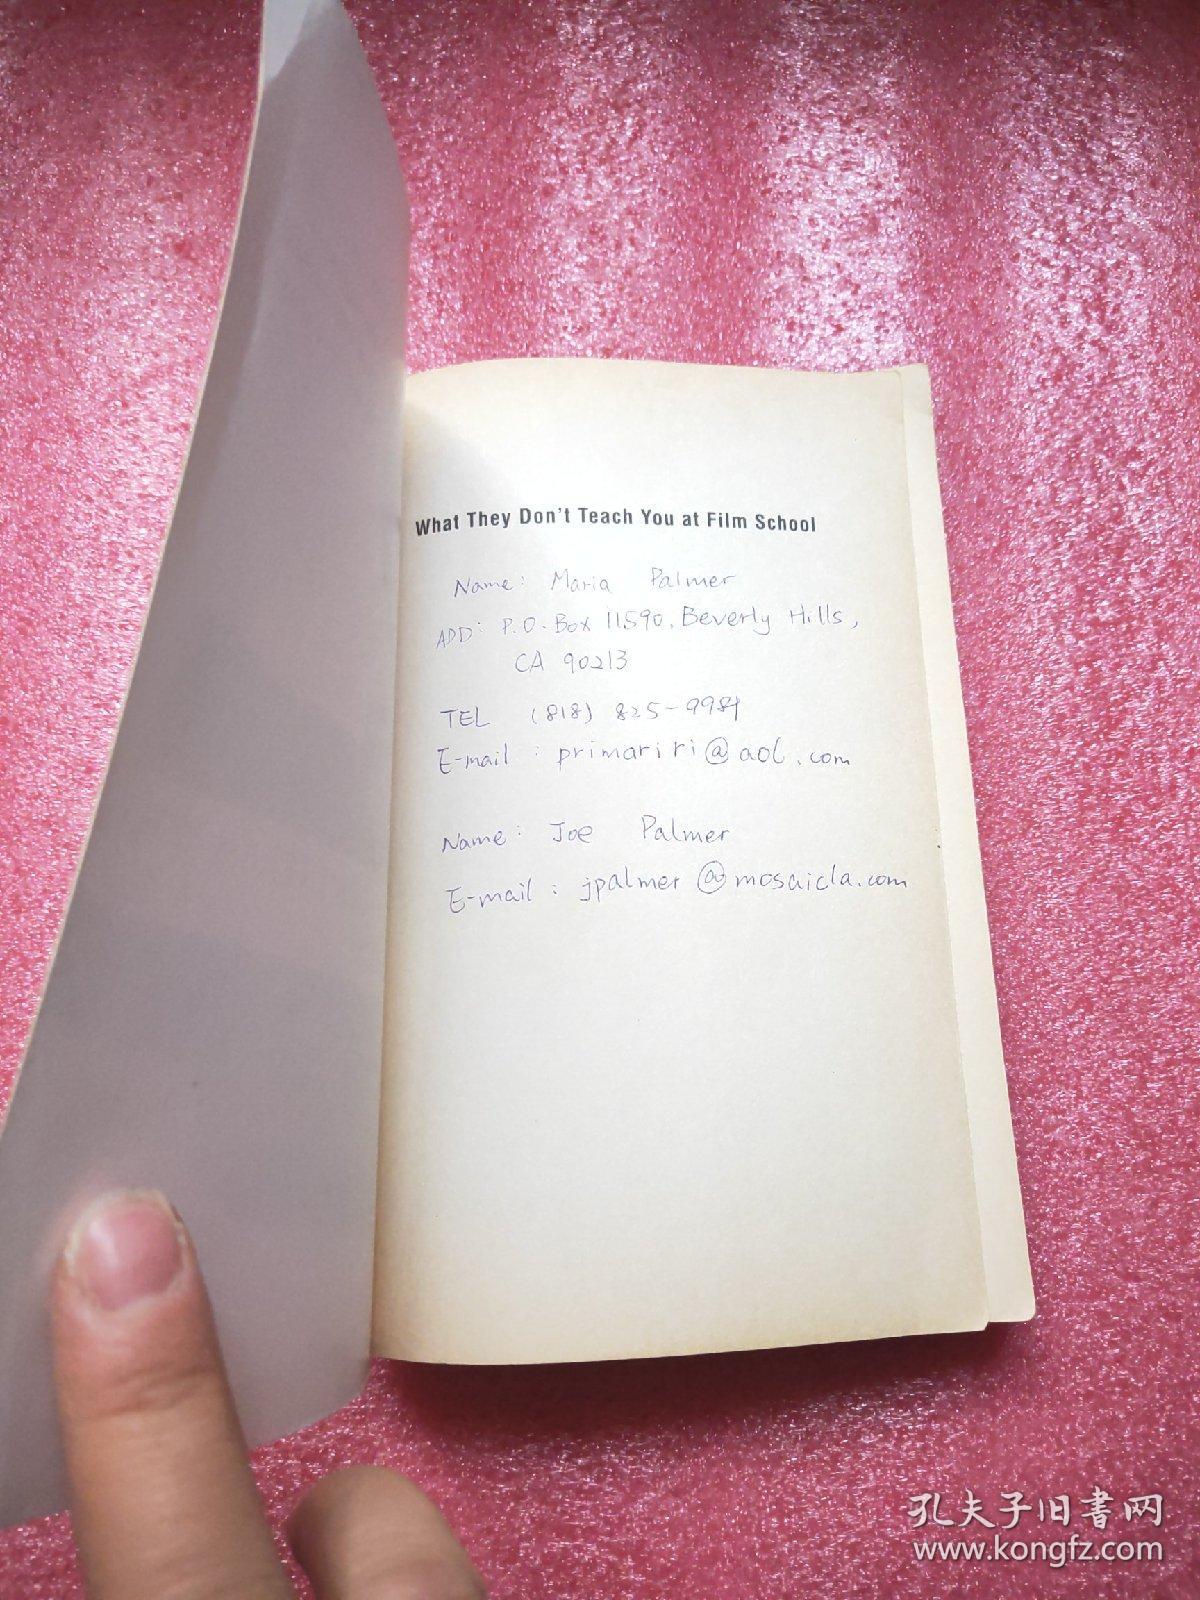 What They Don't Teach You at Film School
Name: Maria Palmer
ADD: P.O. Box 11590, Beverly Hills,
CA 90213
TEL (818) 825-9989
E-mail: primariri@aol.com
Name: Joe Palmer
E-mail: jpalmer@mosaicla.com
孔夫子旧书网
www.kongfz.com